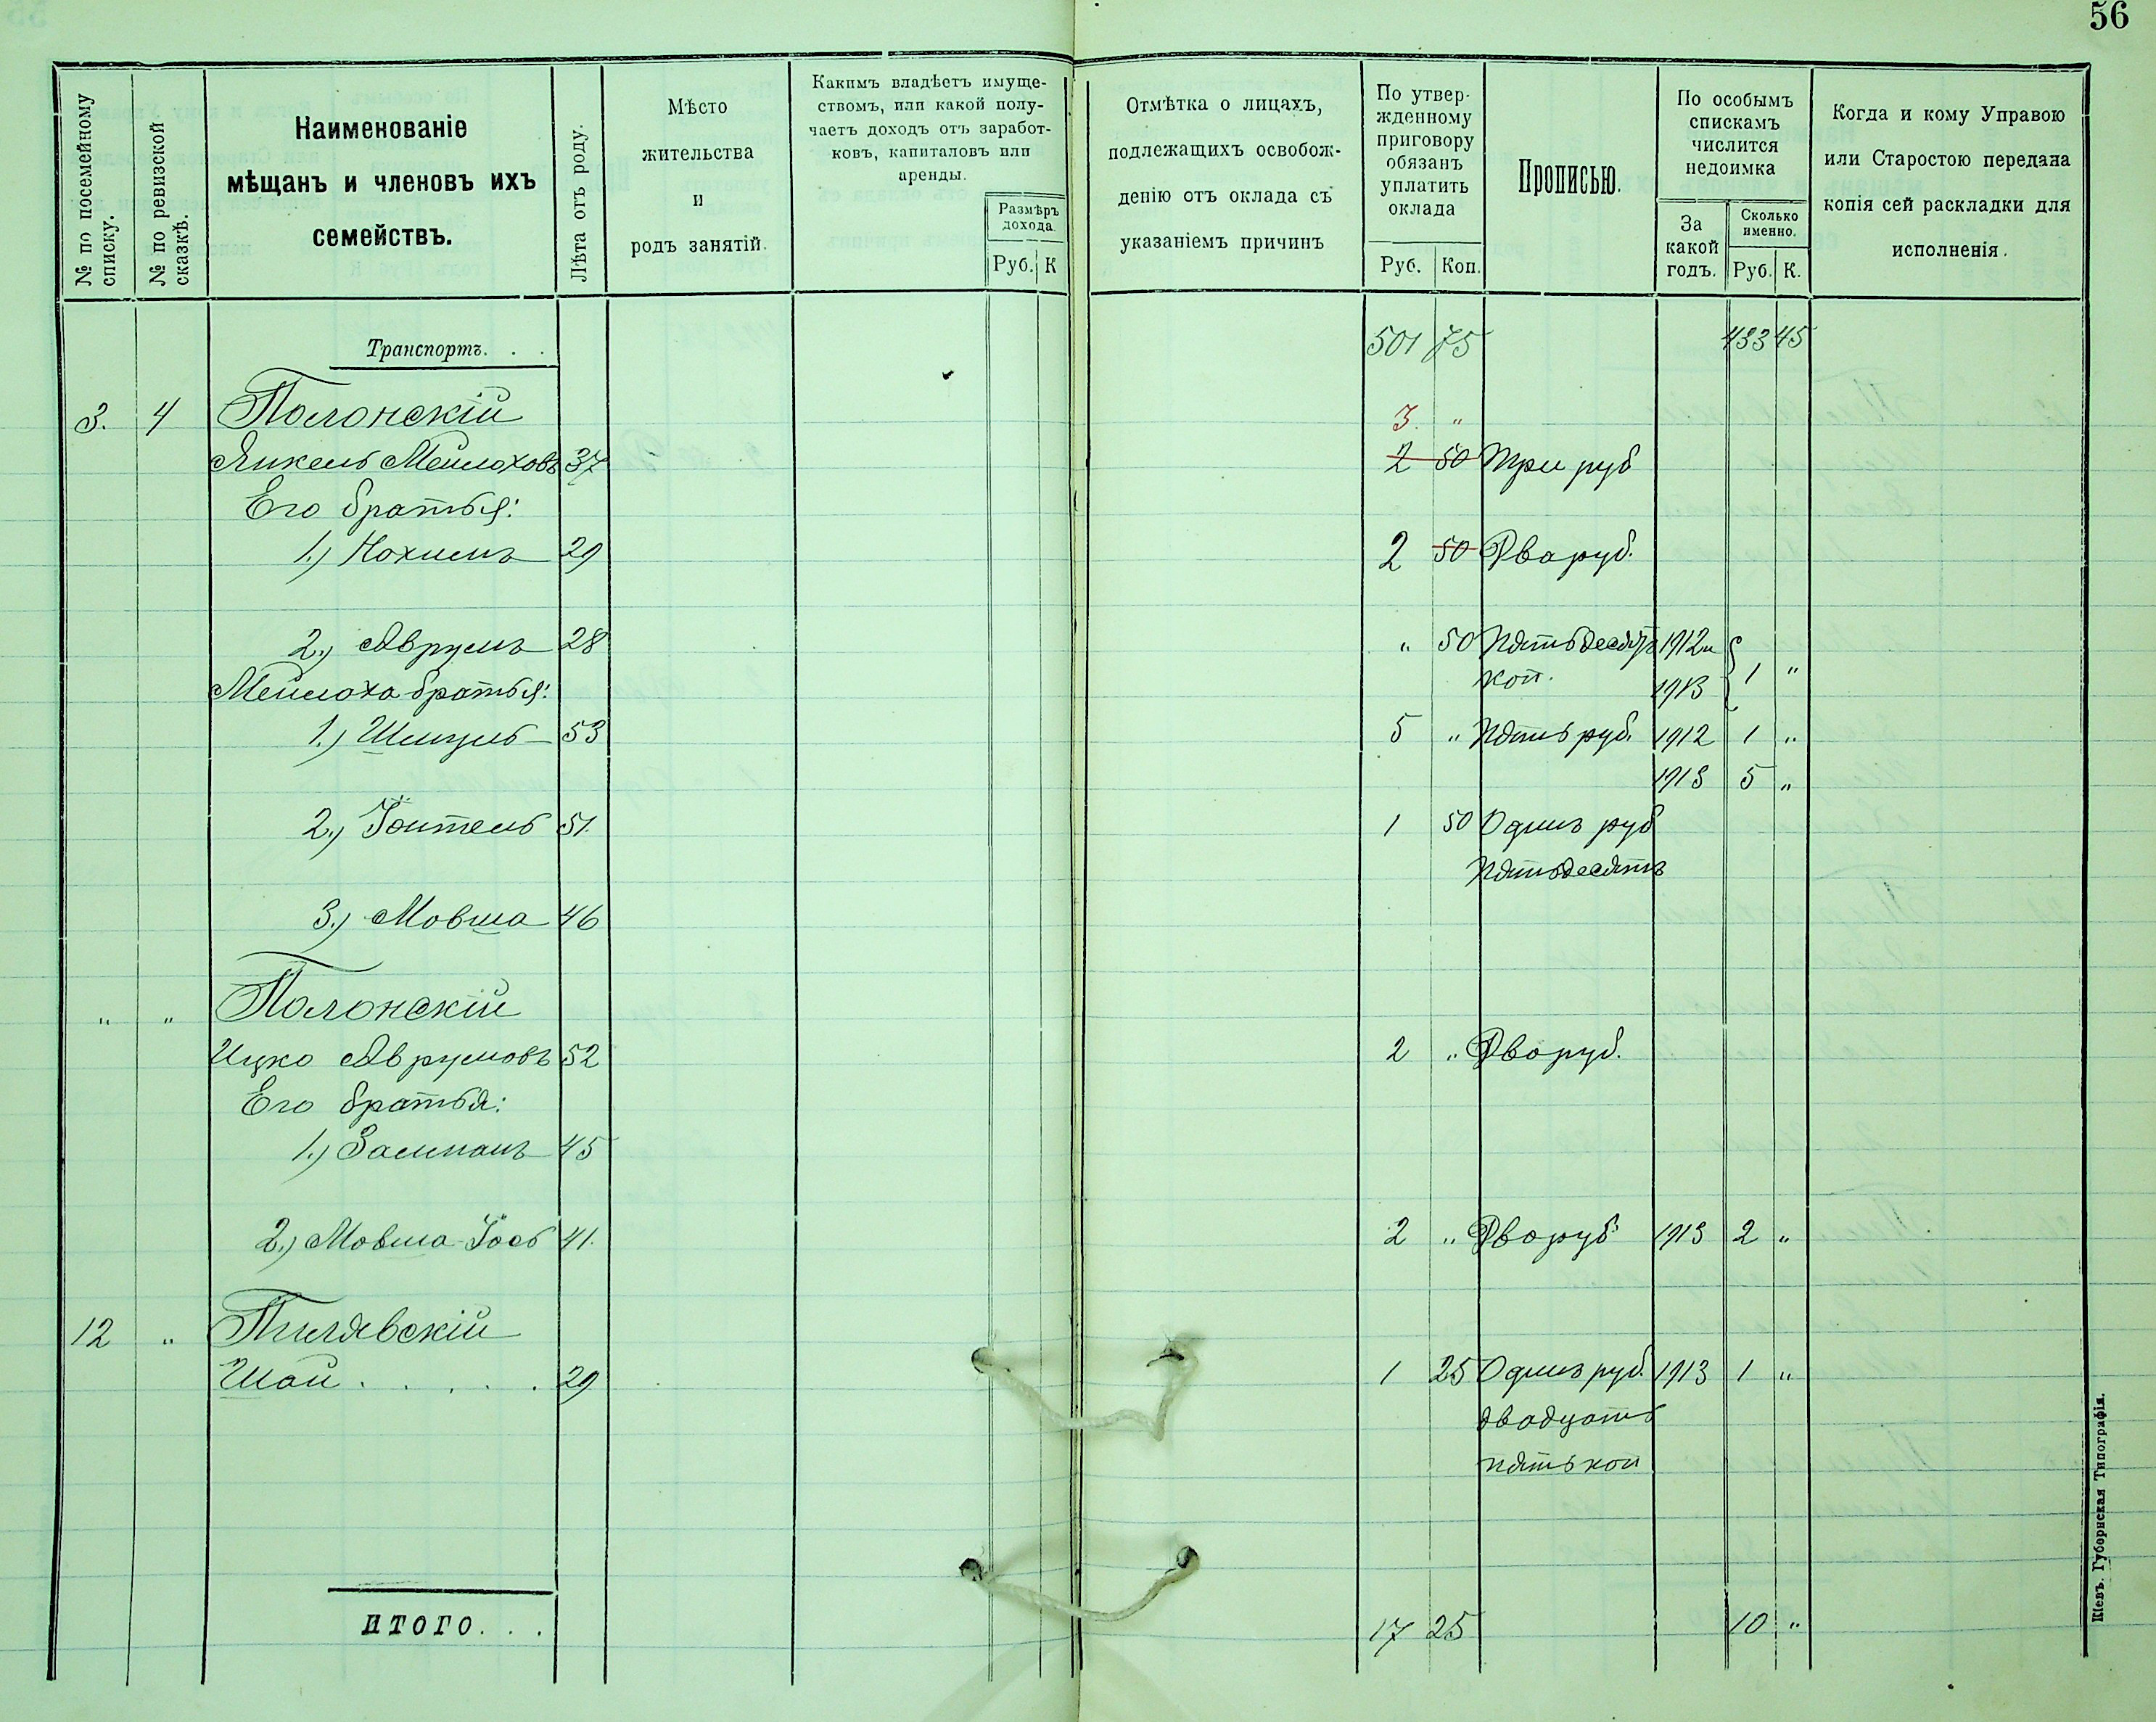 56
№ по посемейному списку.
№ по ревизской сказкѣ.
Наименованіе
мѣщанъ и членовъ ихъ
семействъ.
Лѣта отъ роду.
Мѣсто
жительства
и
родъ занятій.
Какимъ владѣетъ имуще-
ствомъ, или какой полу-
чаетъ доходъ отъ заработ-
ковъ, капиталовъ или
аренды.
Размѣръ
дохода.
Руб. К
Отмѣтка о лицахъ,
подлежащихъ освобож-
денію отъ оклада съ
указаніемъ причинъ
По утвер-
жденному
приговору
обязанъ
уплатить
оклада
Руб. Коп.
Прописью.
По особымъ
спискамъ
числится
недоимка
За
какой
годъ.
Сколько
именно.
Руб. К.
Когда и кому Управою
или Старостою передана
копія сей раскладки для
исполненія.
Транспортъ. . . 501 75 433 45
3. 4 Полонскій 3. "
Янкель Мейлоховъ 37 2 50 Три руб
Его братья:
1.) Нохимъ 29 2 50 Два руб.
2.) Аврумъ 28 " 50 Пятьдесятъ 1912 и
Мейлоха братья: коп. 1913 1 "
1.) Шмуль 53 5 " Пять руб. 1912 1 "
1913 5 "
2.) Іойтель 51. 1 50 Одинъ руб
Пятьдесятъ
3.) Мовша 46
" " Полонскій
Ицко Аврумовъ 52 2 " Два руб.
Его братья:
1.) Залманъ 45
2.) Мовша-Іось 41. 2 " Два руб. 1913 2 "
12 " Пилявскій
Шай . . . . . 29 1 25 Одинъ руб. 1913 1 "
двадцать
пять коп
ИТОГО. . . 17 25 10 "
Кіевъ. Губернская Типографія.